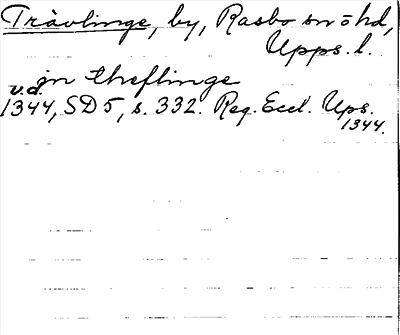 Trävlinge, by, Rasbo sn o hd,
Upps. l.
in theflinge
v.d.
1344, SD 5, s. 332. Reg. Eccl. Ups.
1344.